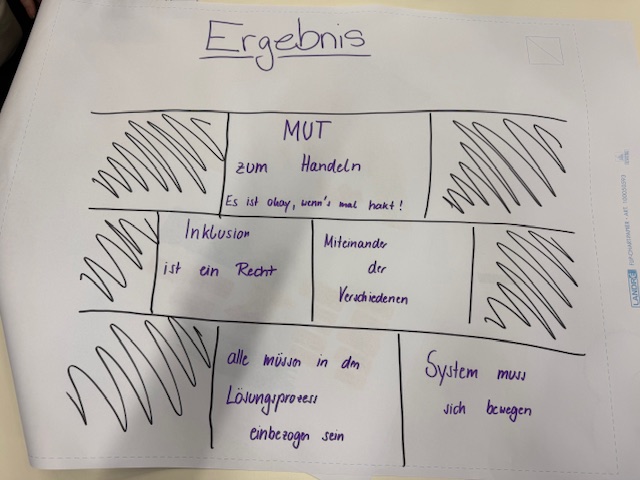 Ergebnis
MUT
zum Handeln
Es ist okay, wenn's mal hakt!
Inklusion
ist ein Recht
Miteinander
der
Verschiedenen
alle müssen in den
Lösungsprozess
einbezogen sein
System muss
sich bewegen